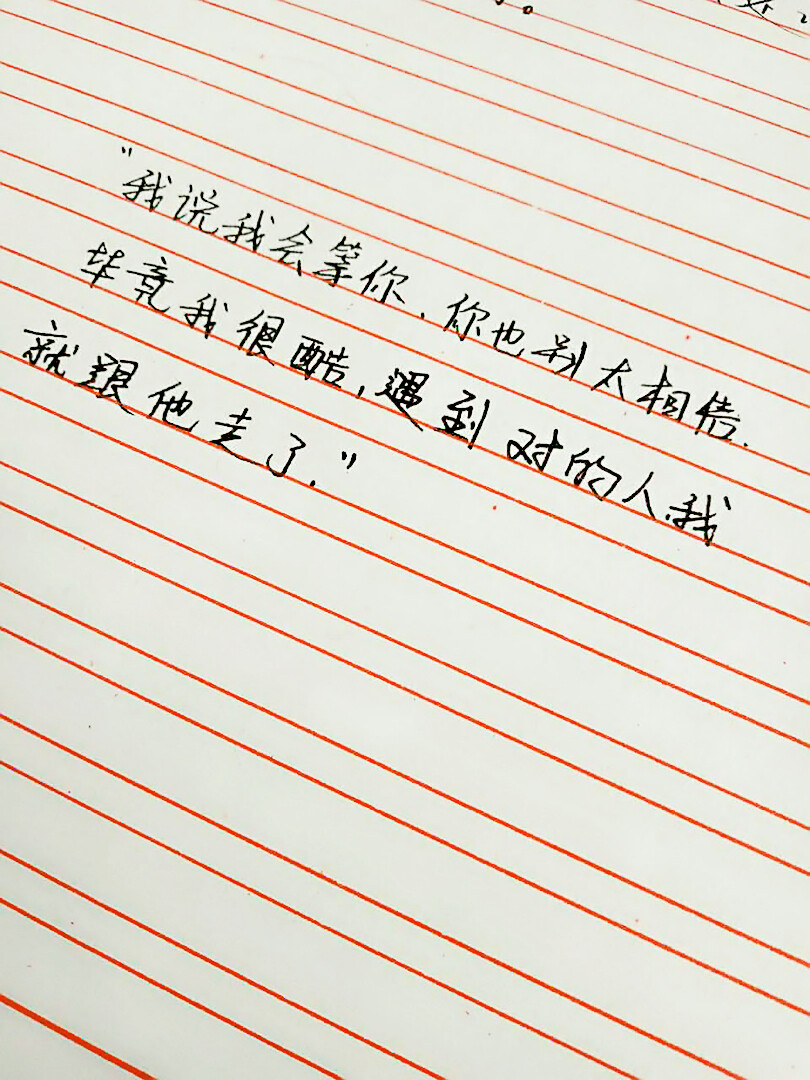 “我说我会等你.你也别太相信.
毕竟我很酷,遇到对的人.我
就跟他走了.”